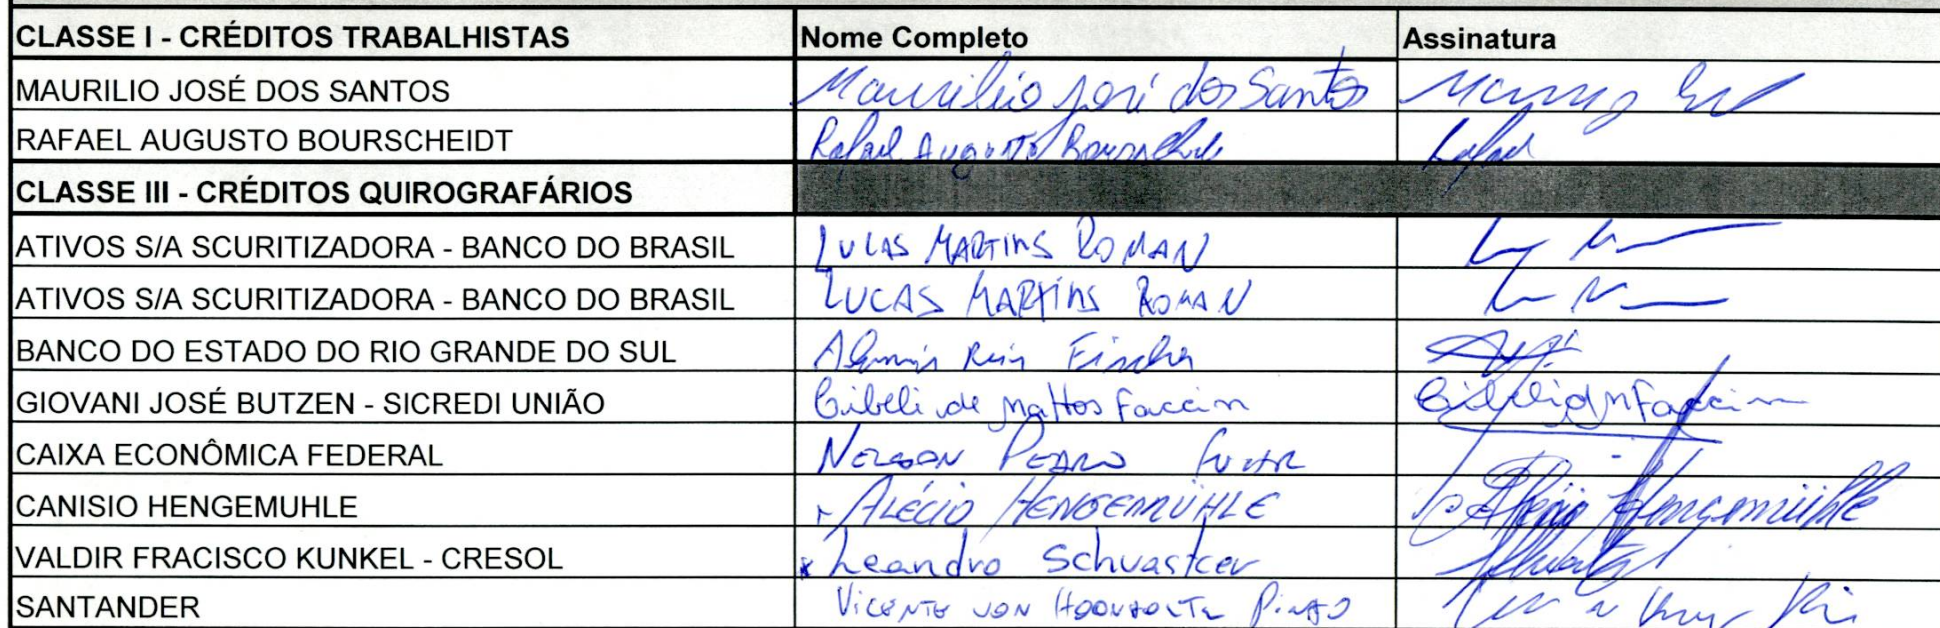 CLASSE I - CRÉDITOS TRABALHISTAS Nome Completo Assinatura
MAURILIO JOSÉ DOS SANTOS Maurilio José dos Santos
RAFAEL AUGUSTO BOURSCHEIDT Rafael Augusto Rafael
CLASSE III - CRÉDITOS QUIROGRAFÁRIOS
ATIVOS S/A SCURITIZADORA - BANCO DO BRASIL LUCAS MARTINS ROMAN
ATIVOS S/A SCURITIZADORA - BANCO DO BRASIL LUCAS MARTINS ROMAN
BANCO DO ESTADO DO RIO GRANDE DO SUL
GIOVANI JOSÉ BUTZEN - SICREDI UNIÃO Cibeli de Mattos Faccin
CAIXA ECONÔMICA FEDERAL NELSON PEDRO
CANISIO HENGEMUHLE ALÉCIO HENGEMÜHLE Alécio Hengemühle
VALDIR FRACISCO KUNKEL - CRESOL Leandro Schvastcer
SANTANDER VICENTE VON